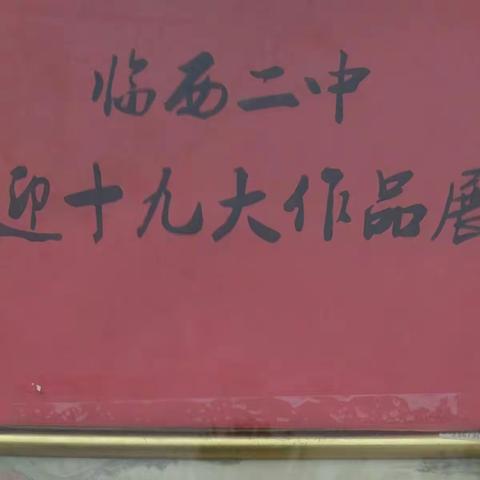 临西二中
迎十九大作品展